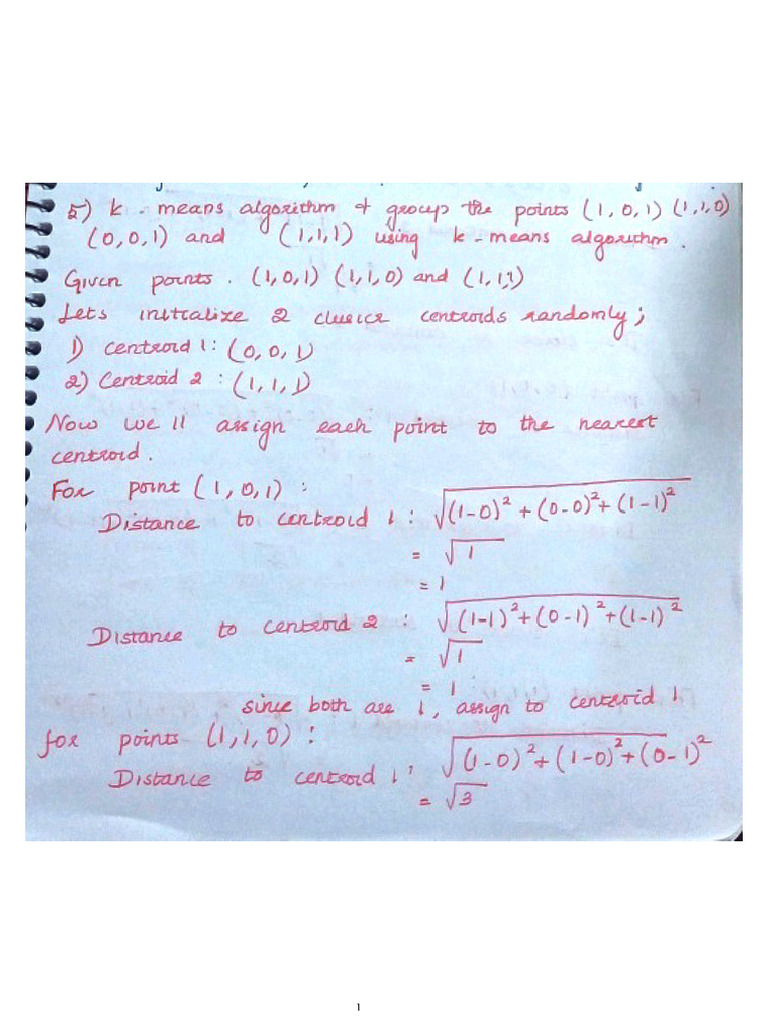 5) k-means algorithm & group the points (1,0,1) (1,1,0)
(0,0,1) and (1,1,1) using k-means algorithm.
Given points. (1,0,1) (1,1,0) and (1,1,1)
Lets initialize 2 cluster centroids randomly;
1) Centroid 1: (0,0,1)
2) Centroid 2 : (1,1,1)
Now we ll assign each point to the nearest
centroid.
For point (1,0,1) :
Distance to centroid 1 : √(1-0)² + (0-0)² + (1-1)²
= √1
= 1
Distance to centroid 2 : √(1-1)² + (0-1)² + (1-1)²
= √1
= 1
since both are 1, assign to centroid 1.
for points (1,1,0) :
Distance to centroid 1: √(1-0)² + (1-0)² + (0-1)²
= √3
1